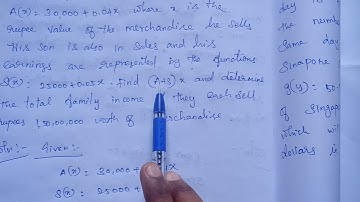 A(x) = 30,000 + 0.04x where x is the
rupee value of the merchandise he sells
His son is also in sales and his
earnings are represented by the functions
S(x) = 25000 + 0.05x. Find (A+S)x and determine
the total family income they each sell
rupees 1,50,00,000 worth of merchandise
Soln:- Given:
A(x) = 30,000 + x
S(x) = 25000 +
day
the number
Same day
Sinapore
g(y) = 50.
of Singap
which wil
dollars is